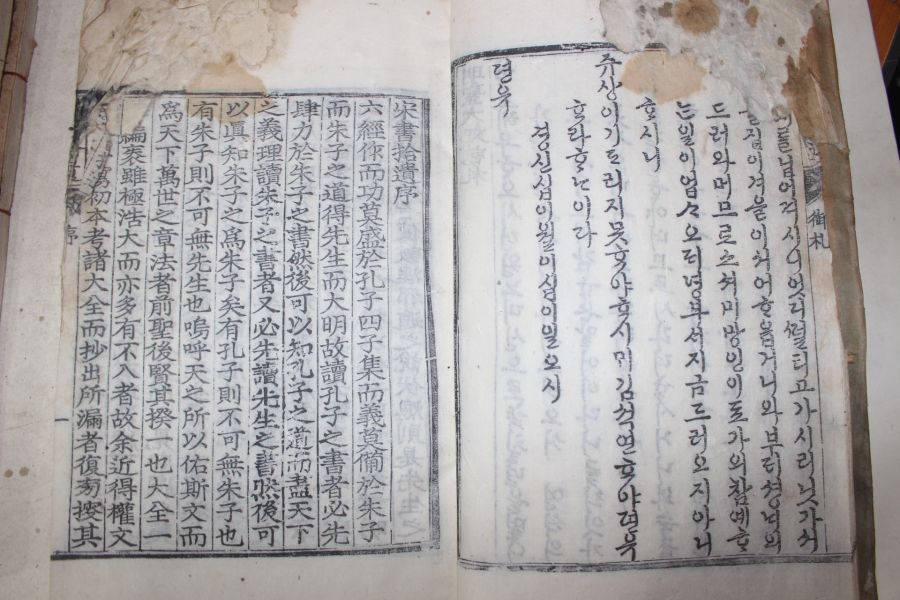 御札
겨을이 치어 ᄒᆞ옵거니와 부러 셩ᄂᆡ의
드러와 머므로쇼셔 미망인이 가의 참예ᄒᆞ
ᄂᆞᆫ 일이 업 지금 드러오지 아니
ᄒᆞ시니
쥬상이 기ᄃᆞ리지 못ᄒᆞ야 ᄒᆞ시며 김셕연ᄒᆞ야 뎐유
ᄒᆞ라 ᄒᆞ신이라
경신십이월이십이일오시
뎐유
宋書拾遺序
六經作而功莫盛於孔子四子集而義莫備於朱子
而朱子之道得先生而大明故讀孔子之書者必先
肆力於朱子之書然後可以知孔子之道而盡天下
之義理讀朱子之書者又必先讀先生之書然後可
以眞知朱子之爲朱子矣有孔子則不可無朱子也
有朱子則不可無先生也嗚呼天之所以佑斯文而
爲天下萬世之章法者前聖後賢其揆一也大全一
編袠雖極浩大而亦多有不入者故余近得權文
萬初本考諸大全而抄出所漏者復旁搜其
序
一